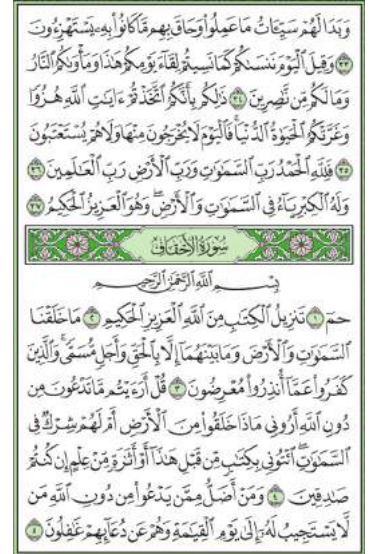 وَبَدَا لَهُمْ سَيِّـَٔاتُ مَا عَمِلُوا۟ وَحَاقَ بِهِم مَّا كَانُوا۟ بِهِۦ يَسْتَهْزِءُونَ
٣٣ وَقِيلَ ٱلْيَوْمَ نَنسَىٰكُمْ كَمَا نَسِيتُمْ لِقَآءَ يَوْمِكُمْ هَٰذَا وَمَأْوَىٰكُمُ ٱلنَّارُ
وَمَا لَكُم مِّن نَّٰصِرِينَ ٣٤ ذَٰلِكُم بِأَنَّكُمُ ٱتَّخَذْتُمْ ءَايَٰتِ ٱللَّهِ هُزُوًا
وَغَرَّتْكُمُ ٱلْحَيَوٰةُ ٱلدُّنْيَا ۚ فَٱلْيَوْمَ لَا يُخْرَجُونَ مِنْهَا وَلَا هُمْ يُسْتَعْتَبُونَ
٣٥ فَلِلَّهِ ٱلْحَمْدُ رَبِّ ٱلسَّمَٰوَٰتِ وَرَبِّ ٱلْأَرْضِ رَبِّ ٱلْعَٰلَمِينَ ٣٦
وَلَهُ ٱلْكِبْرِيَآءُ فِى ٱلسَّمَٰوَٰتِ وَٱلْأَرْضِ ۖ وَهُوَ ٱلْعَزِيزُ ٱلْحَكِيمُ ٣٧
سُورَةُ ٱلْأَحْقَافِ
بِسْمِ ٱللَّهِ ٱلرَّحْمَٰنِ ٱلرَّحِيمِ
حمٓ ١ تَنزِيلُ ٱلْكِتَٰبِ مِنَ ٱللَّهِ ٱلْعَزِيزِ ٱلْحَكِيمِ ٢ مَا خَلَقْنَا
ٱلسَّمَٰوَٰتِ وَٱلْأَرْضَ وَمَا بَيْنَهُمَآ إِلَّا بِٱلْحَقِّ وَأَجَلٍ مُّسَمًّى ۚ وَٱلَّذِينَ
كَفَرُوا۟ عَمَّآ أُنذِرُوا۟ مُعْرِضُونَ ٣ قُلْ أَرَءَيْتُم مَّا تَدْعُونَ مِن
دُونِ ٱللَّهِ أَرُونِى مَاذَا خَلَقُوا۟ مِنَ ٱلْأَرْضِ أَمْ لَهُمْ شِرْكٌ فِى
ٱلسَّمَٰوَٰتِ ۖ ٱئْتُونِى بِكِتَٰبٍ مِّن قَبْلِ هَٰذَآ أَوْ أَثَٰرَةٍ مِّنْ عِلْمٍ إِن كُنتُمْ
صَٰدِقِينَ ٤ وَمَنْ أَضَلُّ مِمَّن يَدْعُوا۟ مِن دُونِ ٱللَّهِ مَن
لَّا يَسْتَجِيبُ لَهُۥٓ إِلَىٰ يَوْمِ ٱلْقِيَٰمَةِ وَهُمْ عَن دُعَآئِهِمْ غَٰفِلُونَ ٥